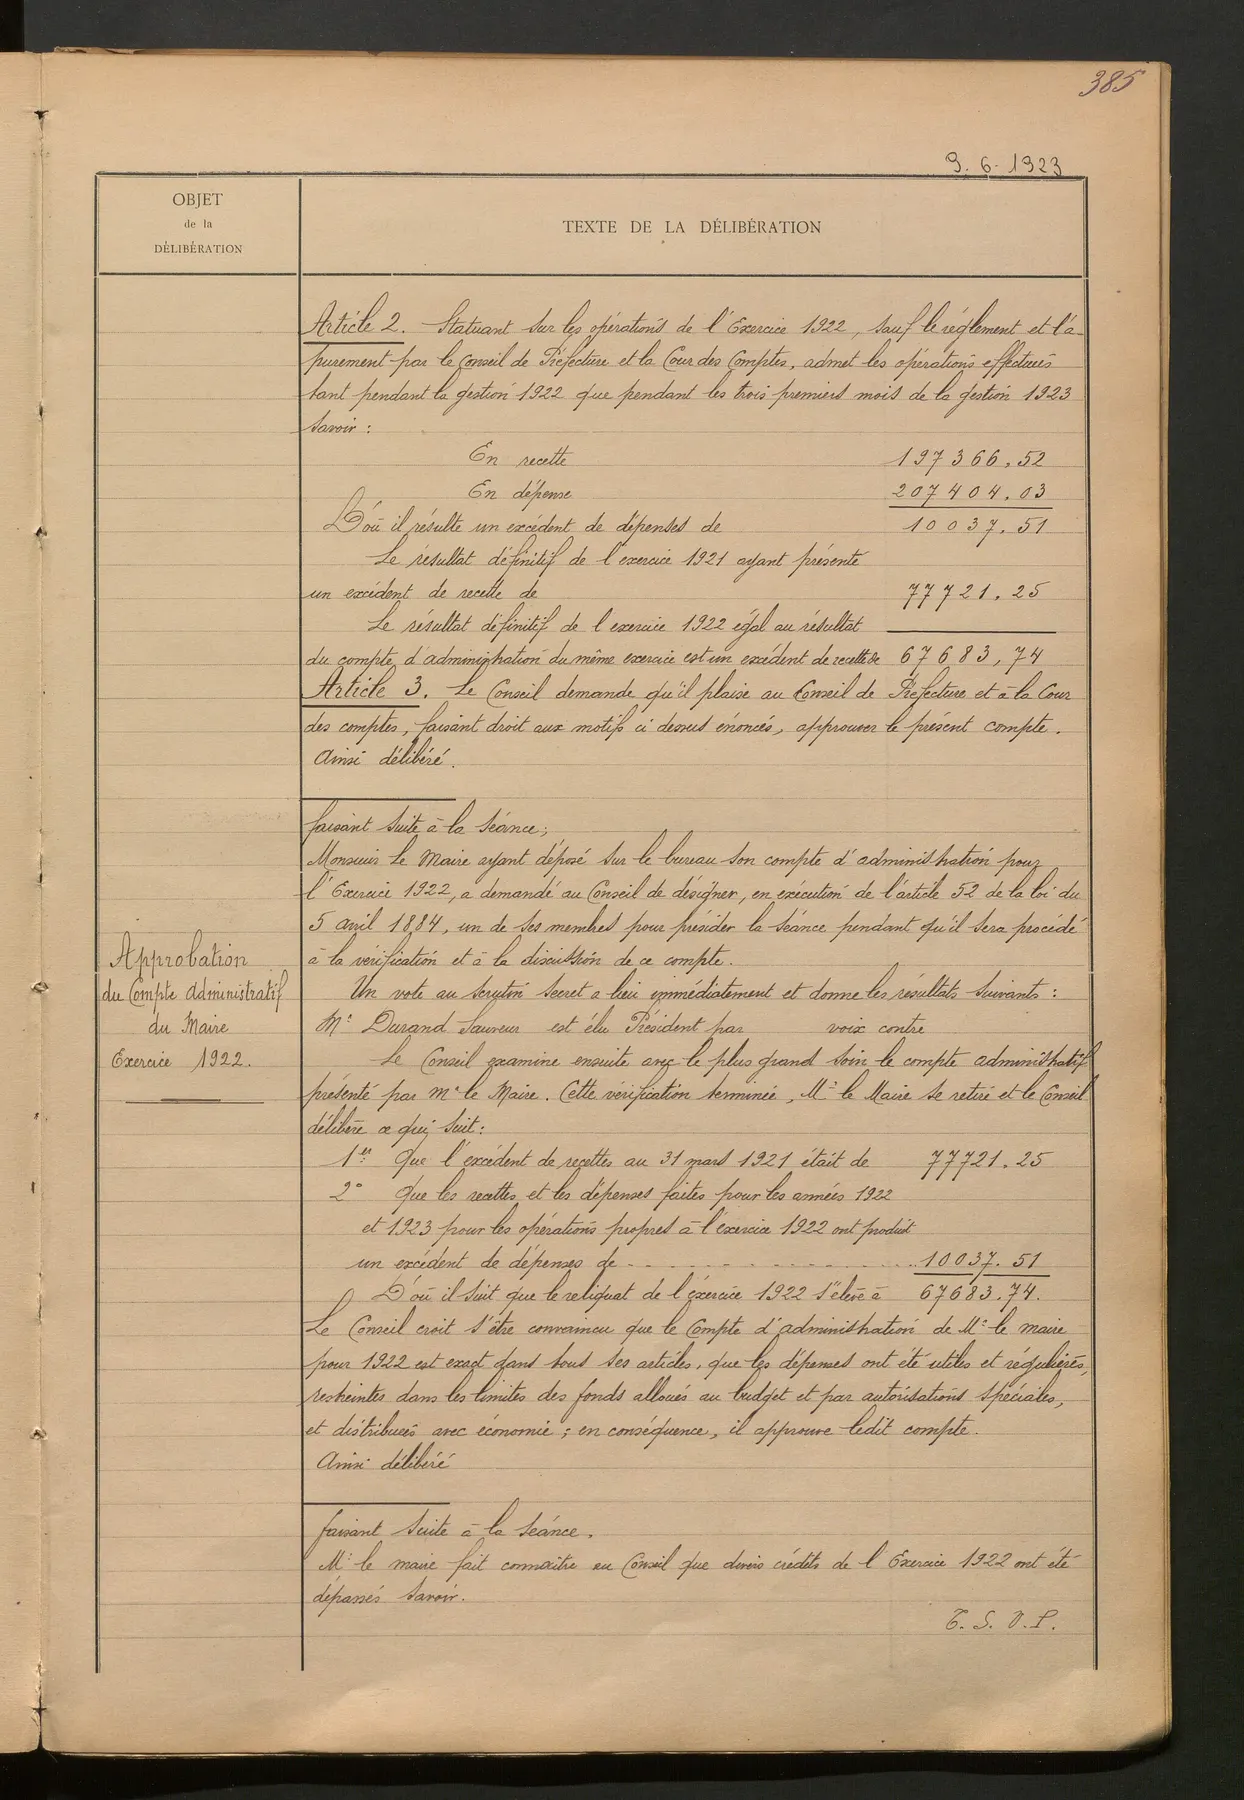 385
9. 6. 1923
OBJET
de la
DÉLIBÉRATION
TEXTE DE LA DÉLIBÉRATION
Article 2. Statuant sur les opérations de l'Exercice 1922, sauf le réglement et l'a-
purement par le Conseil de Préfecture et la Cour des Comptes, admet les opérations effectuées
tant pendant la gestion 1922 que pendant les trois premiers mois de la gestion 1923
savoir :
En recette 197366.52
En dépense 207404.03
D'où il résulte un excédent de dépenses de 10037.51
Le résultat définitif de l'exercice 1921 ayant présenté
un excédent de recette de 77721.25
Le résultat définitif de l'exercice 1922 égal au résultat
du compte d'administration du même exercice est un excédent de recette de 67683,74
Article 3. Le Conseil demande qu'il plaise au Conseil de Préfecture et à la Cour
des comptes, faisant droit aux motifs ci dessus énoncés, approuver le présent compte.
Ainsi délibéré.
faisant suite à la séance;
Monsieur Le Maire ayant déposé sur le bureau son compte d'administration pour
l'Exercice 1922, a demandé au Conseil de désigner, en exécution de l'article 52 de la loi du
5 avril 1884, un de ses membres pour présider la séance pendant qu'il sera procédé
à la vérification et à la discussion de ce compte.
Approbation
du Compte administratif
du Maire
Exercice 1922.
Un vote au scrutin secret a lieu immédiatement et donne les résultats suivants :
Mr Durand Sauveur est élu Président par voix contre
Le Conseil examine ensuite avec le plus grand soin le compte administratif
présenté par Mr le Maire. Cette vérification terminée, Mr le Maire se retire et le Conseil
délibère ce qui suit :
1er Que l'excédent de recettes au 31 mars 1921 était de 77721.25
2° Que les recettes et les dépenses faites pour les années 1922
et 1923 pour les opérations propres à l'exercice 1922 ont produit
un excédent de dépenses de 10037.51
D'où il suit que le reliquat de l'exercice 1922 s'élève à 67683.74.
Le Conseil croit s'être convaincu que le Compte d'administration de Mr le maire
pour 1922 est exact dans tous ses articles, que les dépenses ont été utiles et régulières,
restreintes dans les limites des fonds alloués au budget et par autorisations spéciales,
et distribuées avec économie ; en conséquence, il approuve ledit compte.
Ainsi délibéré
faisant suite à la séance.
Mr le maire fait connaître au Conseil que divers crédits de l'Exercice 1922 ont été
dépassés savoir.
T. S. V. P.